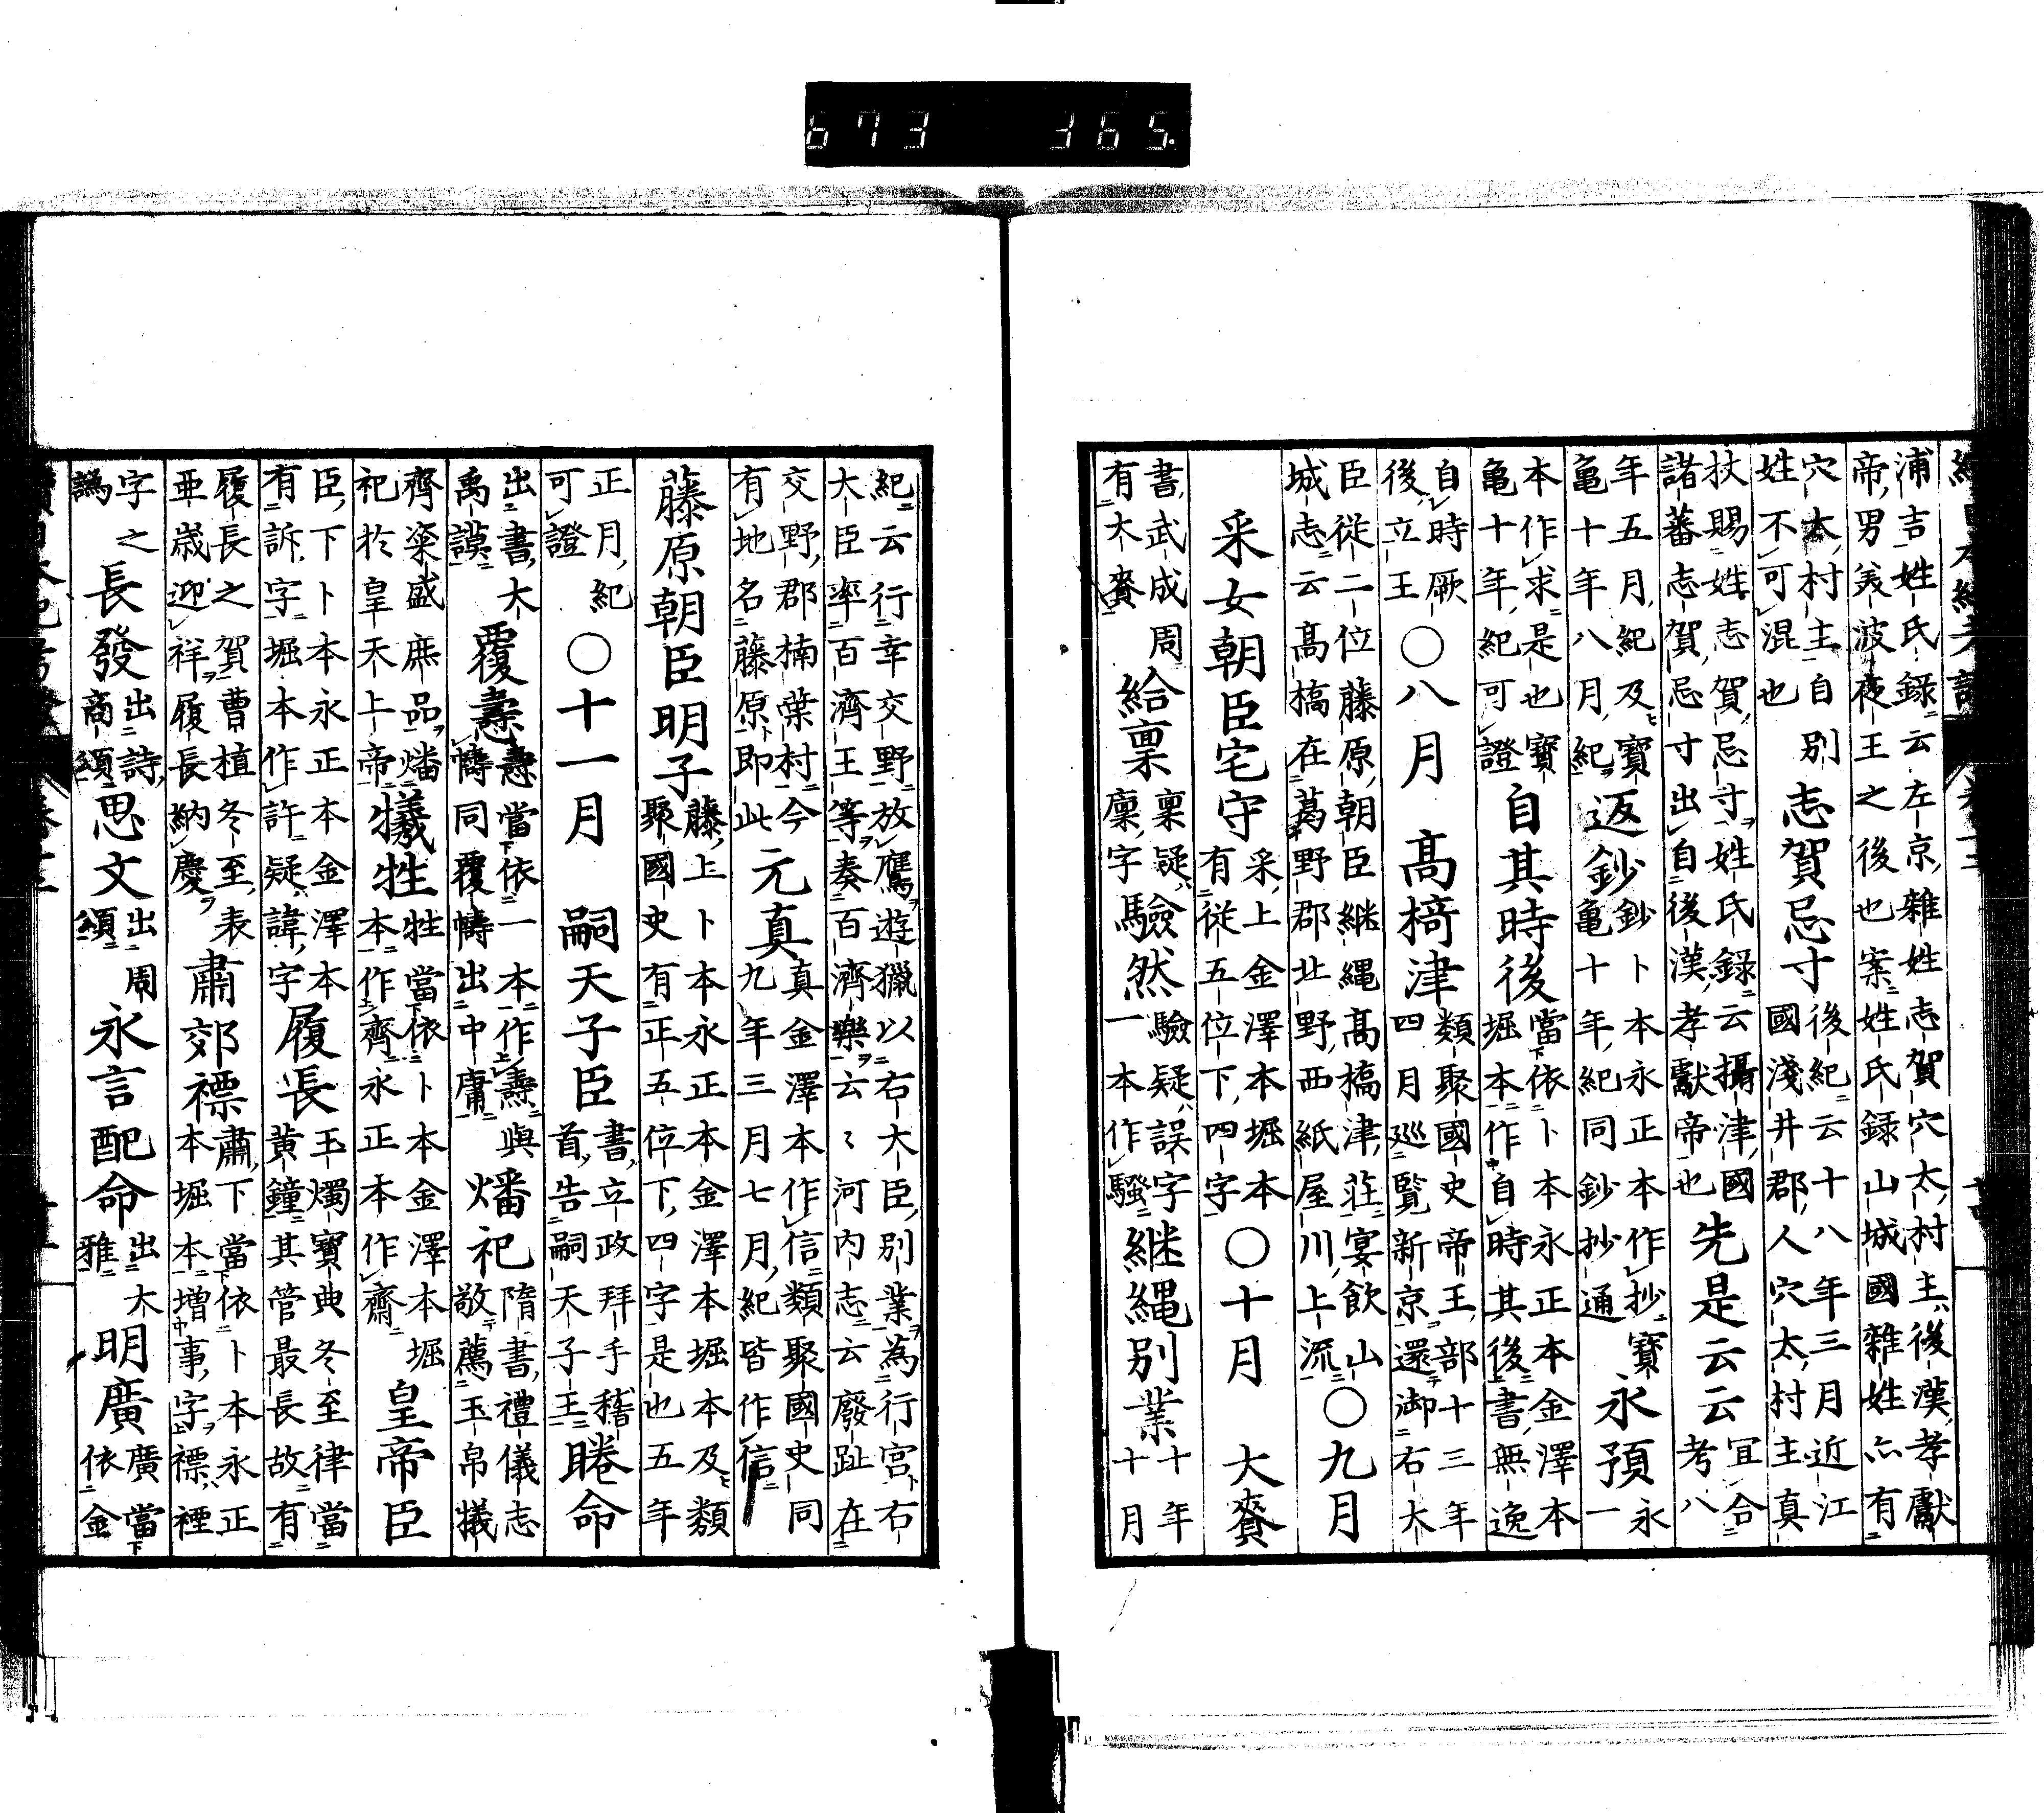 673 365.
浦吉姓氏録云左京雜姓志賀穴太村主後漢孝獻
帝男美波夜王之後也案姓氏録山城國雜姓亦有
穴太村主自別
姓不可混也
志賀忌寸
後紀云十八年三月近江
國淺井郡人穴太村主真
杖賜姓志賀忌寸姓氏録云攝津國
諸蕃志賀忌寸出自後漢孝獻帝也
先是云云
宜合
考八
年五月紀及寶
亀十年八月紀
返鈔
鈔卜本永正本作抄寶
亀十年紀同鈔抄通
永預
永
一
本作求是也寶
亀十年紀可證
自其時後
當依卜本永正本金澤本
堀本作自時其後書無逸
自時厥
後立王
〇八月
高椅津
類聚國史帝王部十三年
四月巡覧新京還御右大
臣從二位藤原朝臣継縄高橋津莊宴飲山
城志云高橋在葛野郡北野西紙屋川上流
〇九月
采女朝臣宅守
采上金澤本堀本
有從五位下四字
〇十月
大賚
書武成周
有大賚
給稟
稟疑
廩字
驗然
驗疑誤字
一本作騷
継縄別業
十年
十月
紀云行幸交野放鷹遊獵以右大臣別業為行宮右
大臣率百濟王等奏百濟樂云〻河内志云廢趾在
交野郡楠葉村今
有地名藤原即此
元真
真金澤本作信類聚國史同
九年三月七月紀皆作信
藤原朝臣明子
藤上卜本永正本金澤本堀本及類
聚國史有正五位下四字是也五年
正月紀
可證
〇十一月
嗣天子臣
書立政拜手稽
首告嗣天子王
睠命
出書大
禹謨
覆燾
燾當依一本作燾與
幬同覆幬出中庸
燔祀
隋書禮儀志
敬薦玉帛犠
齊粢盛庶品燔
祀於皇天上帝
犠牲
牲當依卜本金澤本堀
本作齊永正本作齋
皇帝臣
臣下卜本永正本金澤本
有訴字堀本作許疑諱字
履長
玉燭寶典冬至律當
黃鐘其管最長故有
履長之賀曹植冬至表
亜歳迎祥履長納慶
肅郊禋
肅下當依卜本永正
本堀本増事字禋
字之
譌
長發
出詩
商頌
思文
出周
頌
永言配命
出大
雅
明廣
廣當
依金